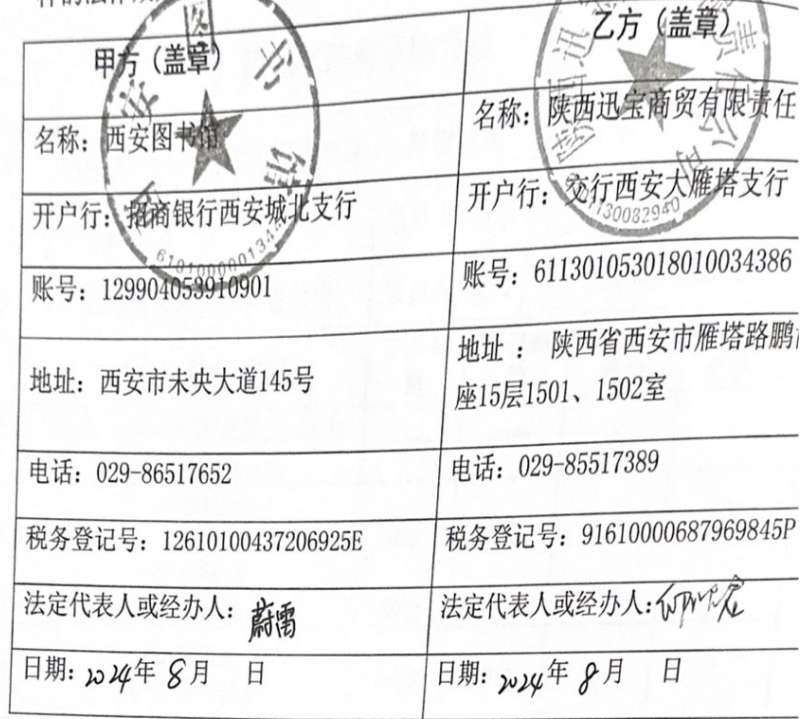 甲方（盖章）
乙方（盖章）
名称：西安图书馆
名称：陕西迅宝商贸有限责任
开户行：招商银行西安城北支行
开户行：交行西安大雁塔支行
账号：129904053910901
账号：611301053018010034386
地址：西安市未央大道145号
地址： 陕西省西安市雁塔路鹏
座15层1501、1502室
电话：029-86517652
电话：029-85517389
税务登记号：12610100437206925E
税务登记号：91610000687969845P
法定代表人或经办人：蔚雷
法定代表人或经办人：
日期：2024年 8月 日
日期：2024年 8月 日